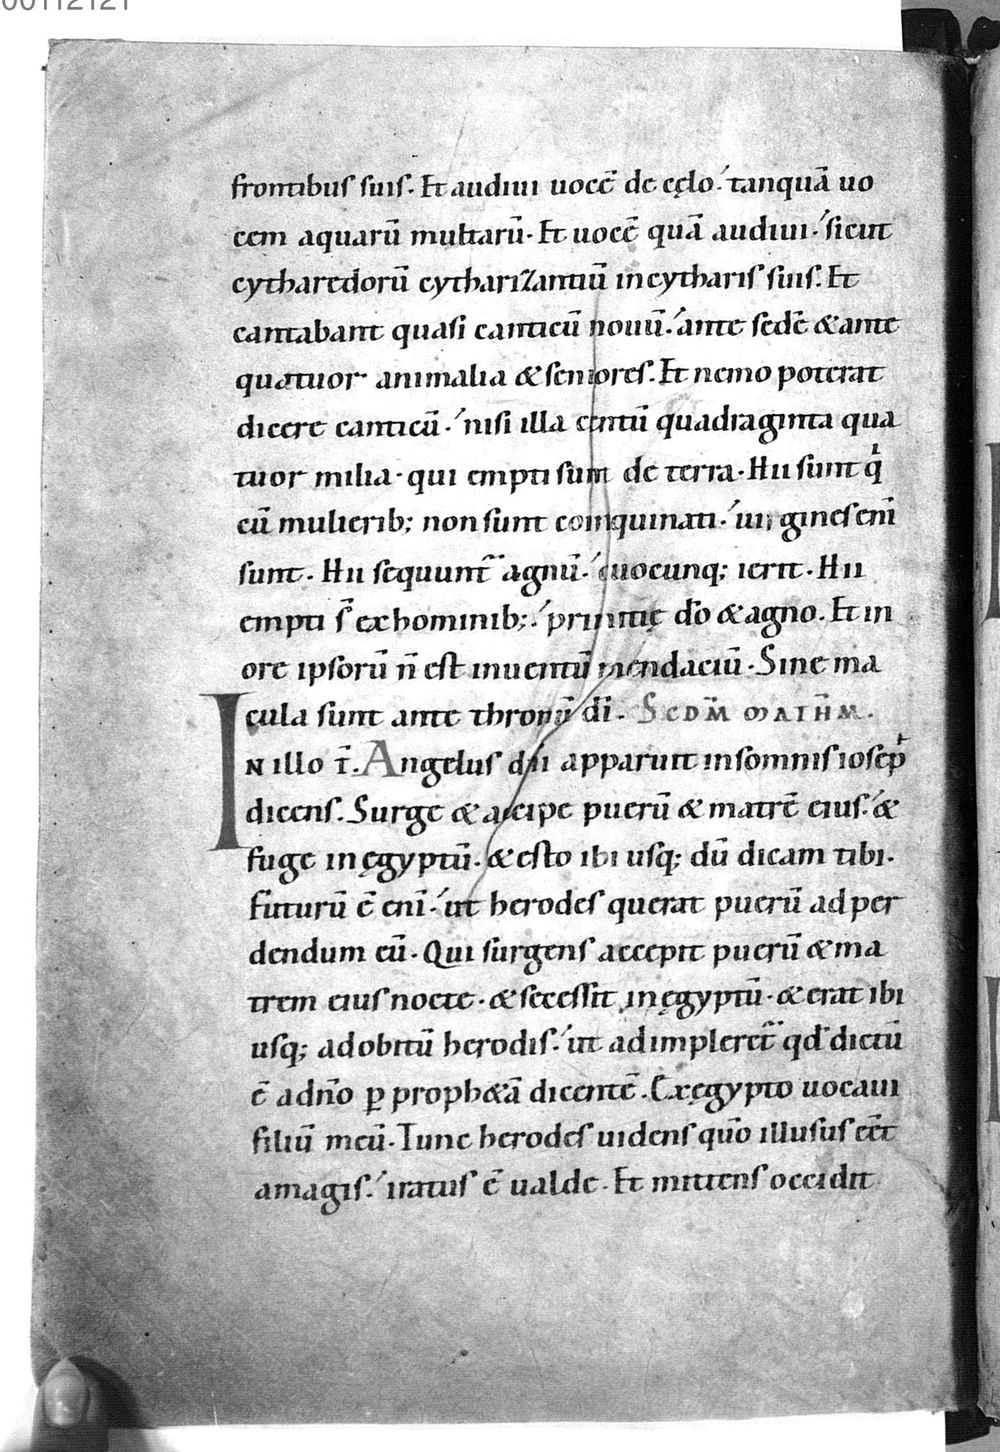 00112121
frontibus suis. Et audiui uocē de cęlo. tanquā uo
cem aquarū multarū. Et uocē quā audiui. sicut
cytharedorū cytharizantiū in cytharis suis. Et
cantabant quasi canticū nouū. ante sedē & ante
quatuor animalia & seniores. Et nemo poterat
dicere canticū. nisi illa centū quadraginta qua
tuor milia. qui empti sunt de terra. Hii sunt qͥ
cū mulierib; non sunt coinquinati. uirgines enī
sunt. Hii sequunt̄ agnū. quocunq; ierit. Hii
empti s̄ ex hominib;. primitię do̅ & agno. Et in
ore ipsorū n̄ est inuentū mendaciū. Sine ma
cula sunt ante thronū dī. SCDM̄ MATHM̄.
IN illo t̄. Angelus dn̄i apparuit in somnis iosep
dicens. Surge & accipe puerū & matrē eius. &
fuge in ęgyptū. & esto ibi usq; dū dicam tibi.
Futurū ē enī. ut herodes querat puerū ad per
dendum eū. Qui surgens accepit puerū & ma
trem eius nocte. & secessit in ęgyptū. & erat ibi
usq; ad obitū herodis. ut adimpleret̄ qd̄ dictū
ē a dn̄o ꝑ proph&ā dicentē. Ex ęgypto uocaui
filiū meū. Tunc herodes uidens quō illusus eēt
a magis. iratus ē ualde. Et mittens occidit